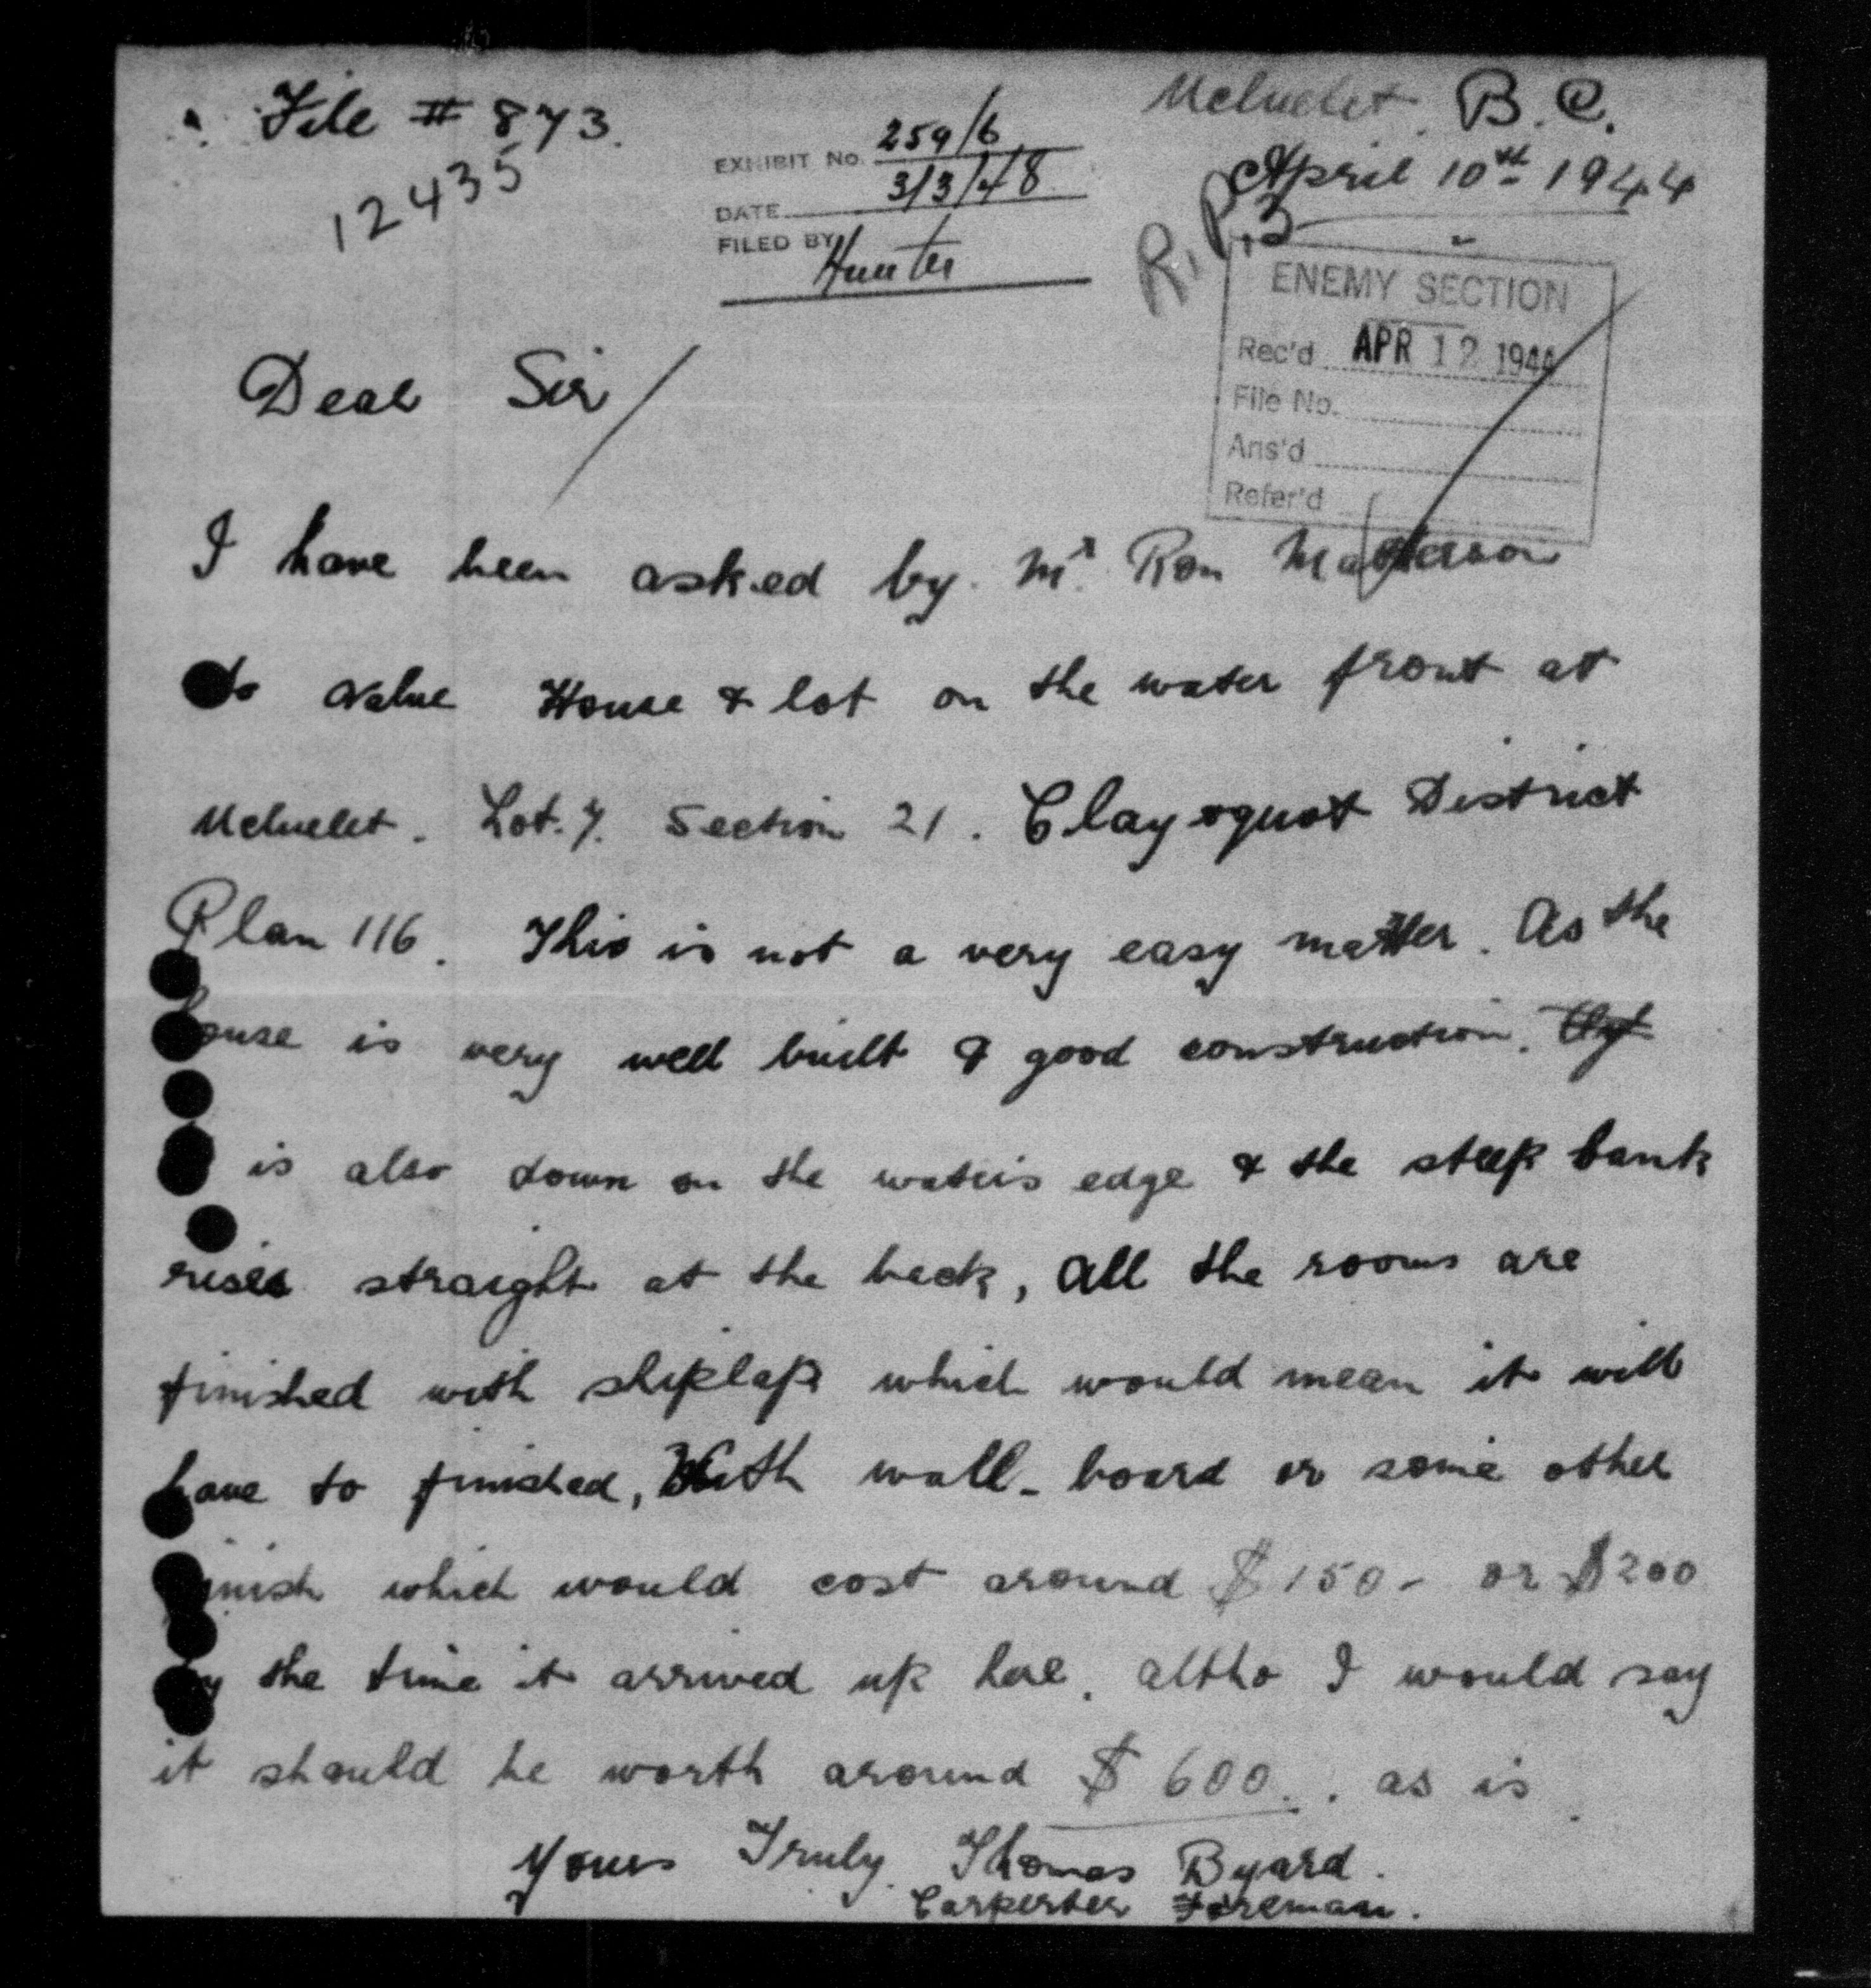 File # 873.
12435
EXHIBIT No. 259/6
DATE 3/3/48
FILED BY Hunter
Ucluelet. B.C.
April 10th 1944
R.P.3
ENEMY SECTION
Rec'd APR 12 1944
File No.
Ans'd
Refer'd
Dear Sir/
I have been asked by Mr. Ron Matterson
to value House & lot on the water front at
Ucluelet. Lot. 7. Section 21. Clayoquot District
Plan 116. This is not a very easy matter. As the
house is very well built & good construction.
is also down on the water's edge & the steep bank
rises straight at the back, all the rooms are
finished with shiplap which would mean it will
have to finished, With wall-board or some other
finish which would cost around $150- or $200
by the time it arrived up here. altho I would say
it should be worth around $600.. as is.
Yours Truly Thomas Byard.
Carpenter Foreman.